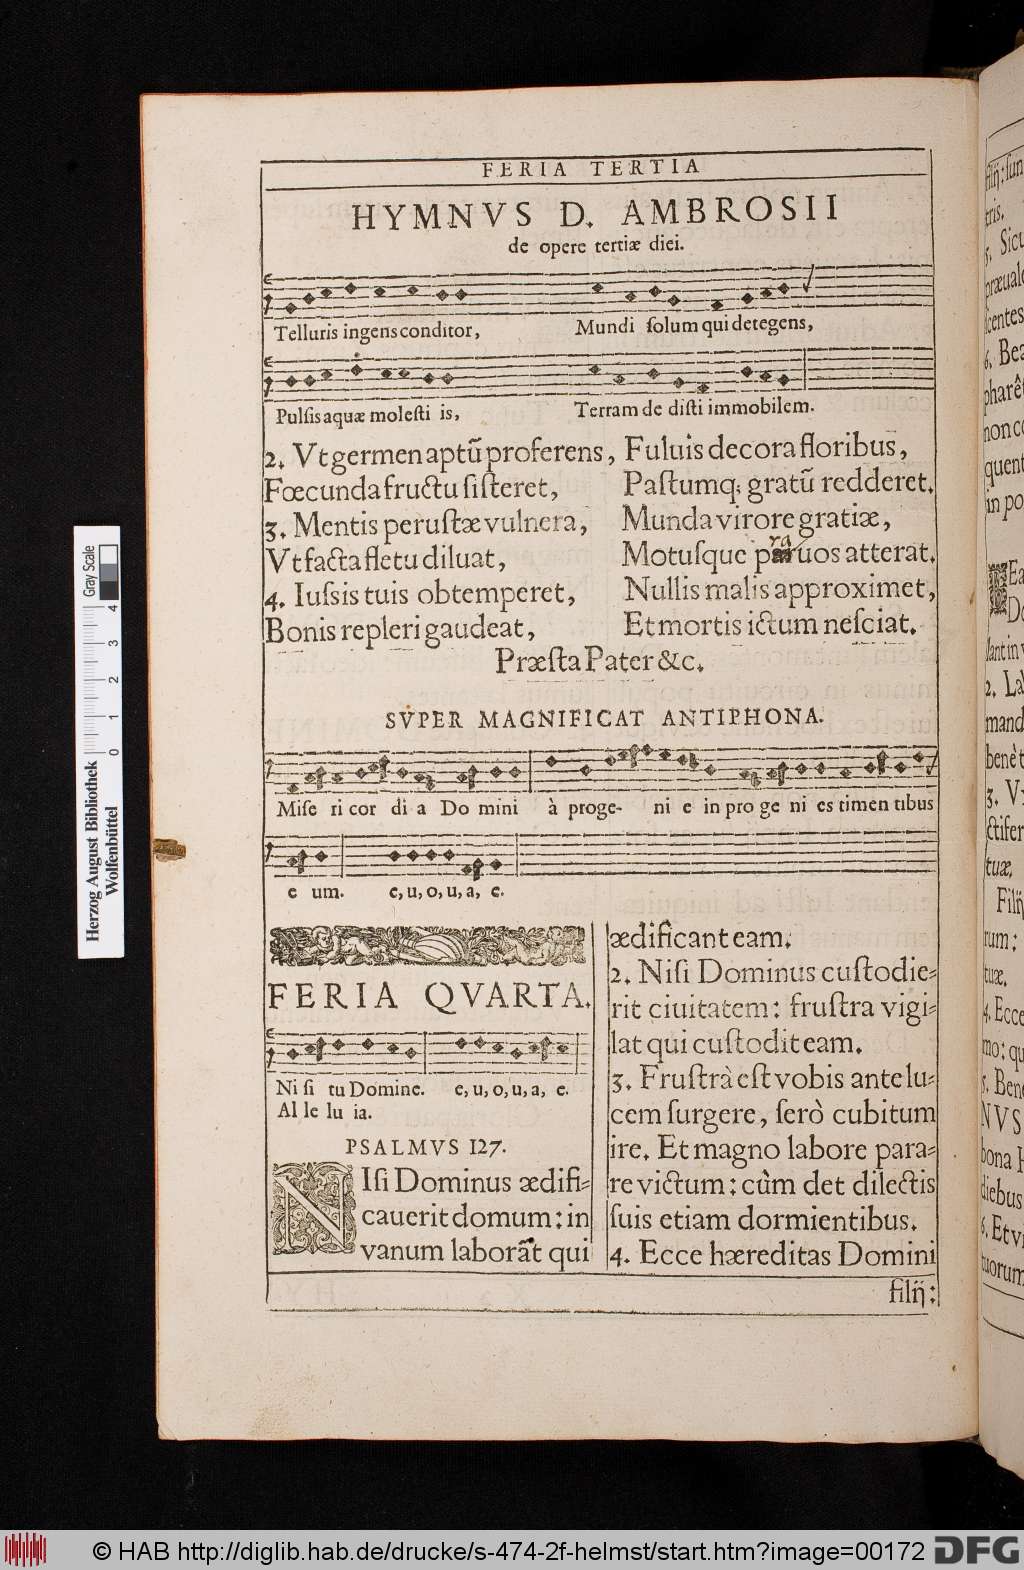 FERIA TERTIA
HYMNVS D. AMBROSII
de opere tertiæ diei.
Telluris ingens conditor, Mundi ſolum qui detegens,
Pulſis aquæ moleſti is, Terram de diſti immobilem.
2. Vt germen aptũ proferens, Fuluis decora floribus,
Fœcunda fructu ſiſteret, Paſtumq; gratũ redderet.
3. Mentis peruſtæ vulnera, Munda virore gratiæ,
Vt facta fletu diluat, Motuſque prauos atterat.
4. Iuſsis tuis obtemperet, Nullis malis approximet,
Bonis repleri gaudeat, Et mortis ictum neſciat.
Præſta Pater &c.
SVPER MAGNIFICAT ANTIPHONA.
Miſe ri cor di a Do mini à proge- ni e in pro ge ni es timen tibus
e um. e, u, o, u, a, e.
FERIA QVARTA.
Ni ſi tu Domine. e, u, o, u, a, e.
Al le lu ia.
PSALMVS 127.
NIſi Dominus ædifi-
cauerit domum: in
vanum laborãt qui
ædificant eam.
2. Niſi Dominus cuſtodie-
rit ciuitatem: fruſtra vigi-
lat qui cuſtodit eam.
3. Fruſtrà eſt vobis ante lu-
cem ſurgere, ſerò cubitum
ire. Et magno labore para-
re victum: cùm det dilectis
ſuis etiam dormientibus.
4. Ecce hæreditas Domini
filij:
filij: ſun
tris.
5. Sicu
præuale
centes
6. Bea
pharêt
non co
quent
in po
Ea
Do
lant in v
2. La
mand
benè t
3. V
ctifer
tuæ.
Filij
rum:
tuæ.
4. Ecce
mo: qu
5. Bene
NVS
bona H
diebus
6. Et vi
tuorum
Herzog August Bibliothek
Wolfenbüttel
0 1 2 3 4
Gray Scale
© HAB http://diglib.hab.de/drucke/s-474-2f-helmst/start.htm?image=00172
DFG